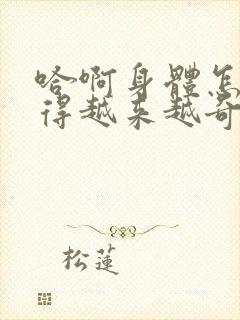 哈啊身體怎
得越来越奇
松蓮